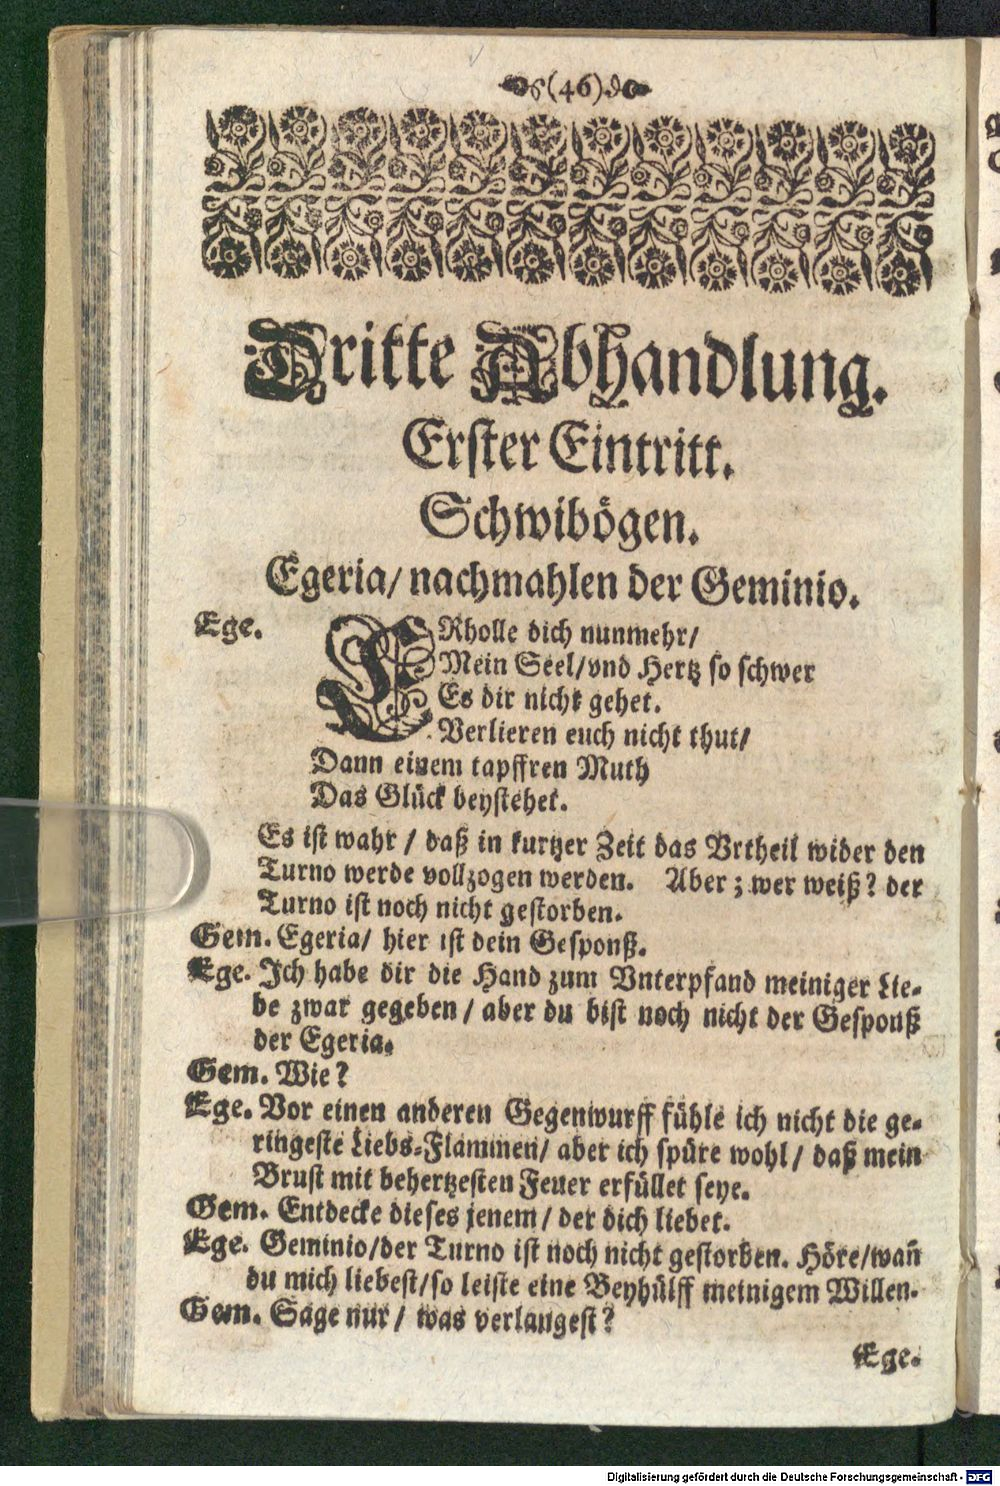 (46)
Dritte Abhandlung.
Erster Eintritt.
Schwibögen.
Egeria/ nachmahlen der Geminio.
Ege. ERholle dich nunmehr/
Mein Seel/vnd Hertz so schwer
Es dir nicht gehet.
Verlieren euch nicht thut/
Dann einem tapffren Muth
Das Glück beystehet.
Es ist wahr / daß in kurtzer Zeit das Vrtheil wider den
Turno werde vollzogen werden. Aber ; wer weiß? der
Turno ist noch nicht gestorben.
Gem. Egeria/ hier ist dein Gesponß.
Ege. Ich habe dir die Hand zum Vnterpfand meiniger Lie-
be zwar gegeben / aber du bist noch nicht der Gesponß
der Egeria.
Gem. Wie?
Ege. Vor einen anderen Gegenwurff fühle ich nicht die ge-
ringeste Liebs-Flammen/ aber ich spüre wohl / daß mein
Brust mit behertzesten Feuer erfüllet seye.
Gem. Entdecke dieses jenem / der dich liebet.
Ege. Geminio/der Turno ist noch nicht gestorben. Höre/wañ
du mich liebest/so leiste eine Beyhülff meinigem Willen.
Gem. Sage nur / was verlangest?
Ege.
Digitalisierung gefördert durch die Deutsche Forschungsgemeinschaft - DFG